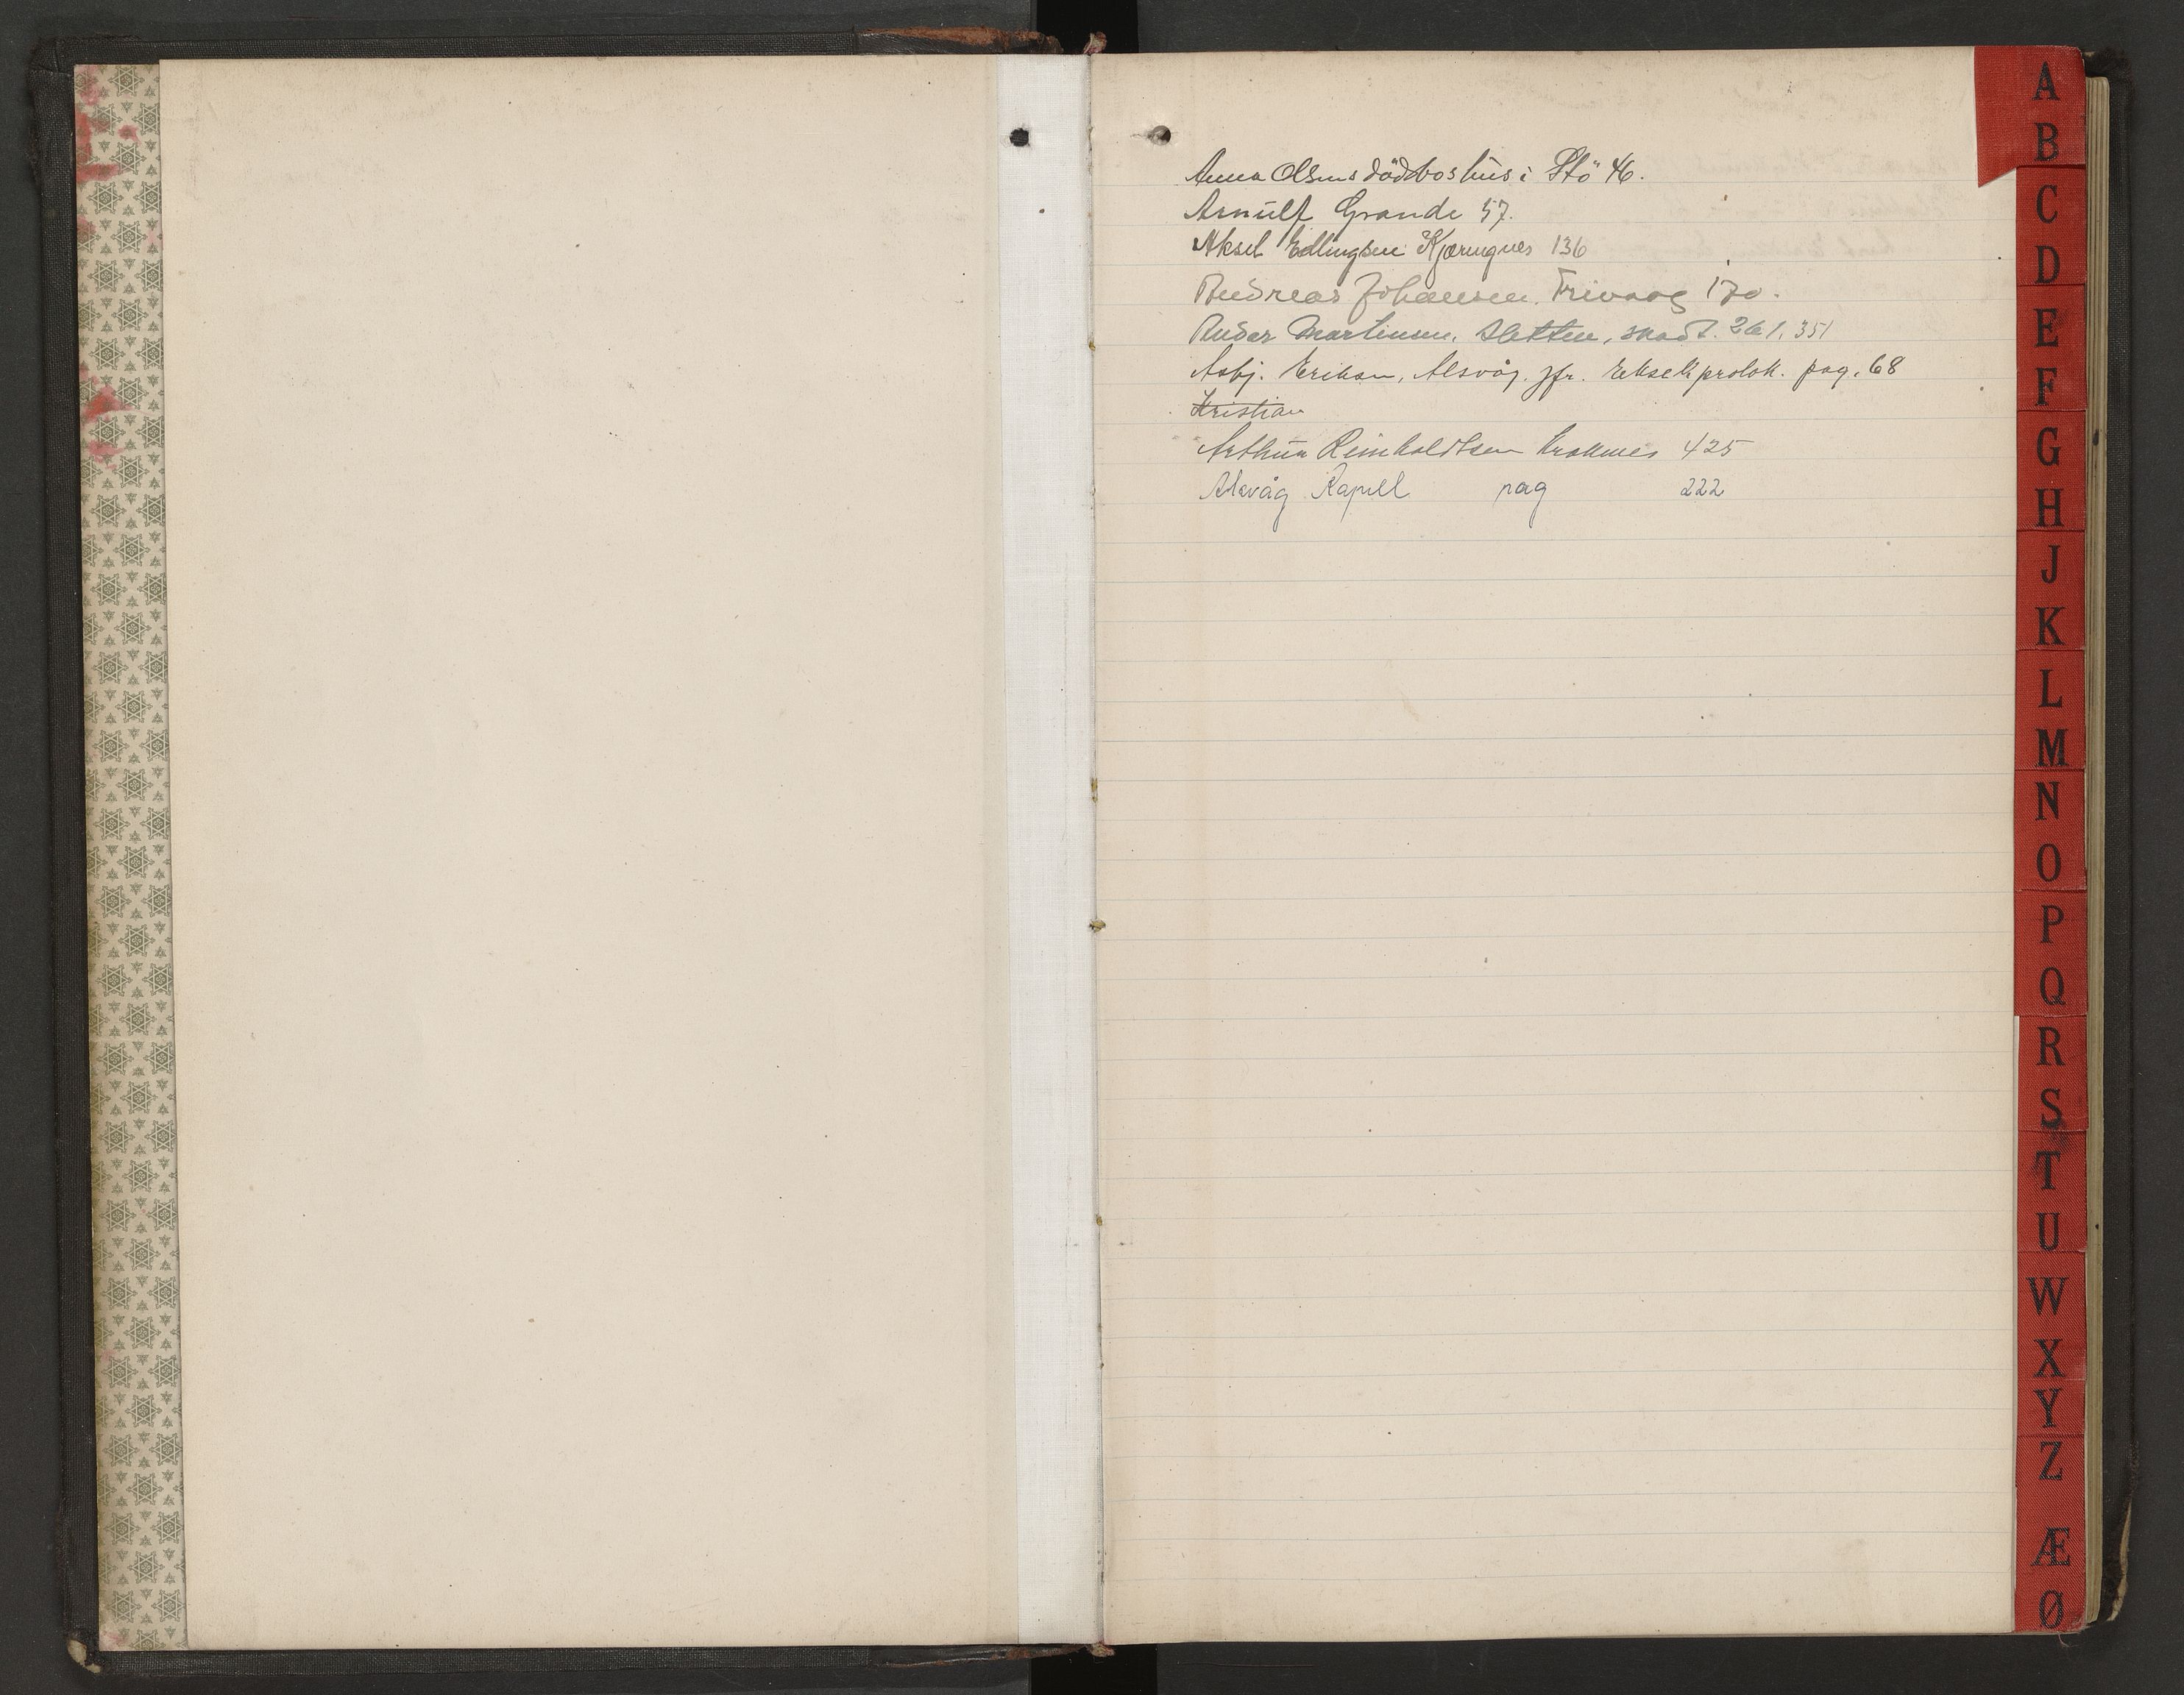 Anna Olsens dödsbos hus i Stö 46.
Arnulf Grande 57.
Aksel Edlingsen Kjæringnes 136
Andreas Johansen. Frivaag 170.
Peder Martinsen, Sletten, skadt. 261, 351
Asbj. Eriksen, Alsvåg. jfr. Eksekprotok. pag. 68
Kristian
Arthur Reinholdtsen Kraknes 425
Alsvåg Kapell pag 222
A
B
C
D
E
F
G
H
J
K
L
M
N
O
P
Q
R
S
T
U
W
X
Y
Z
Æ
Ø